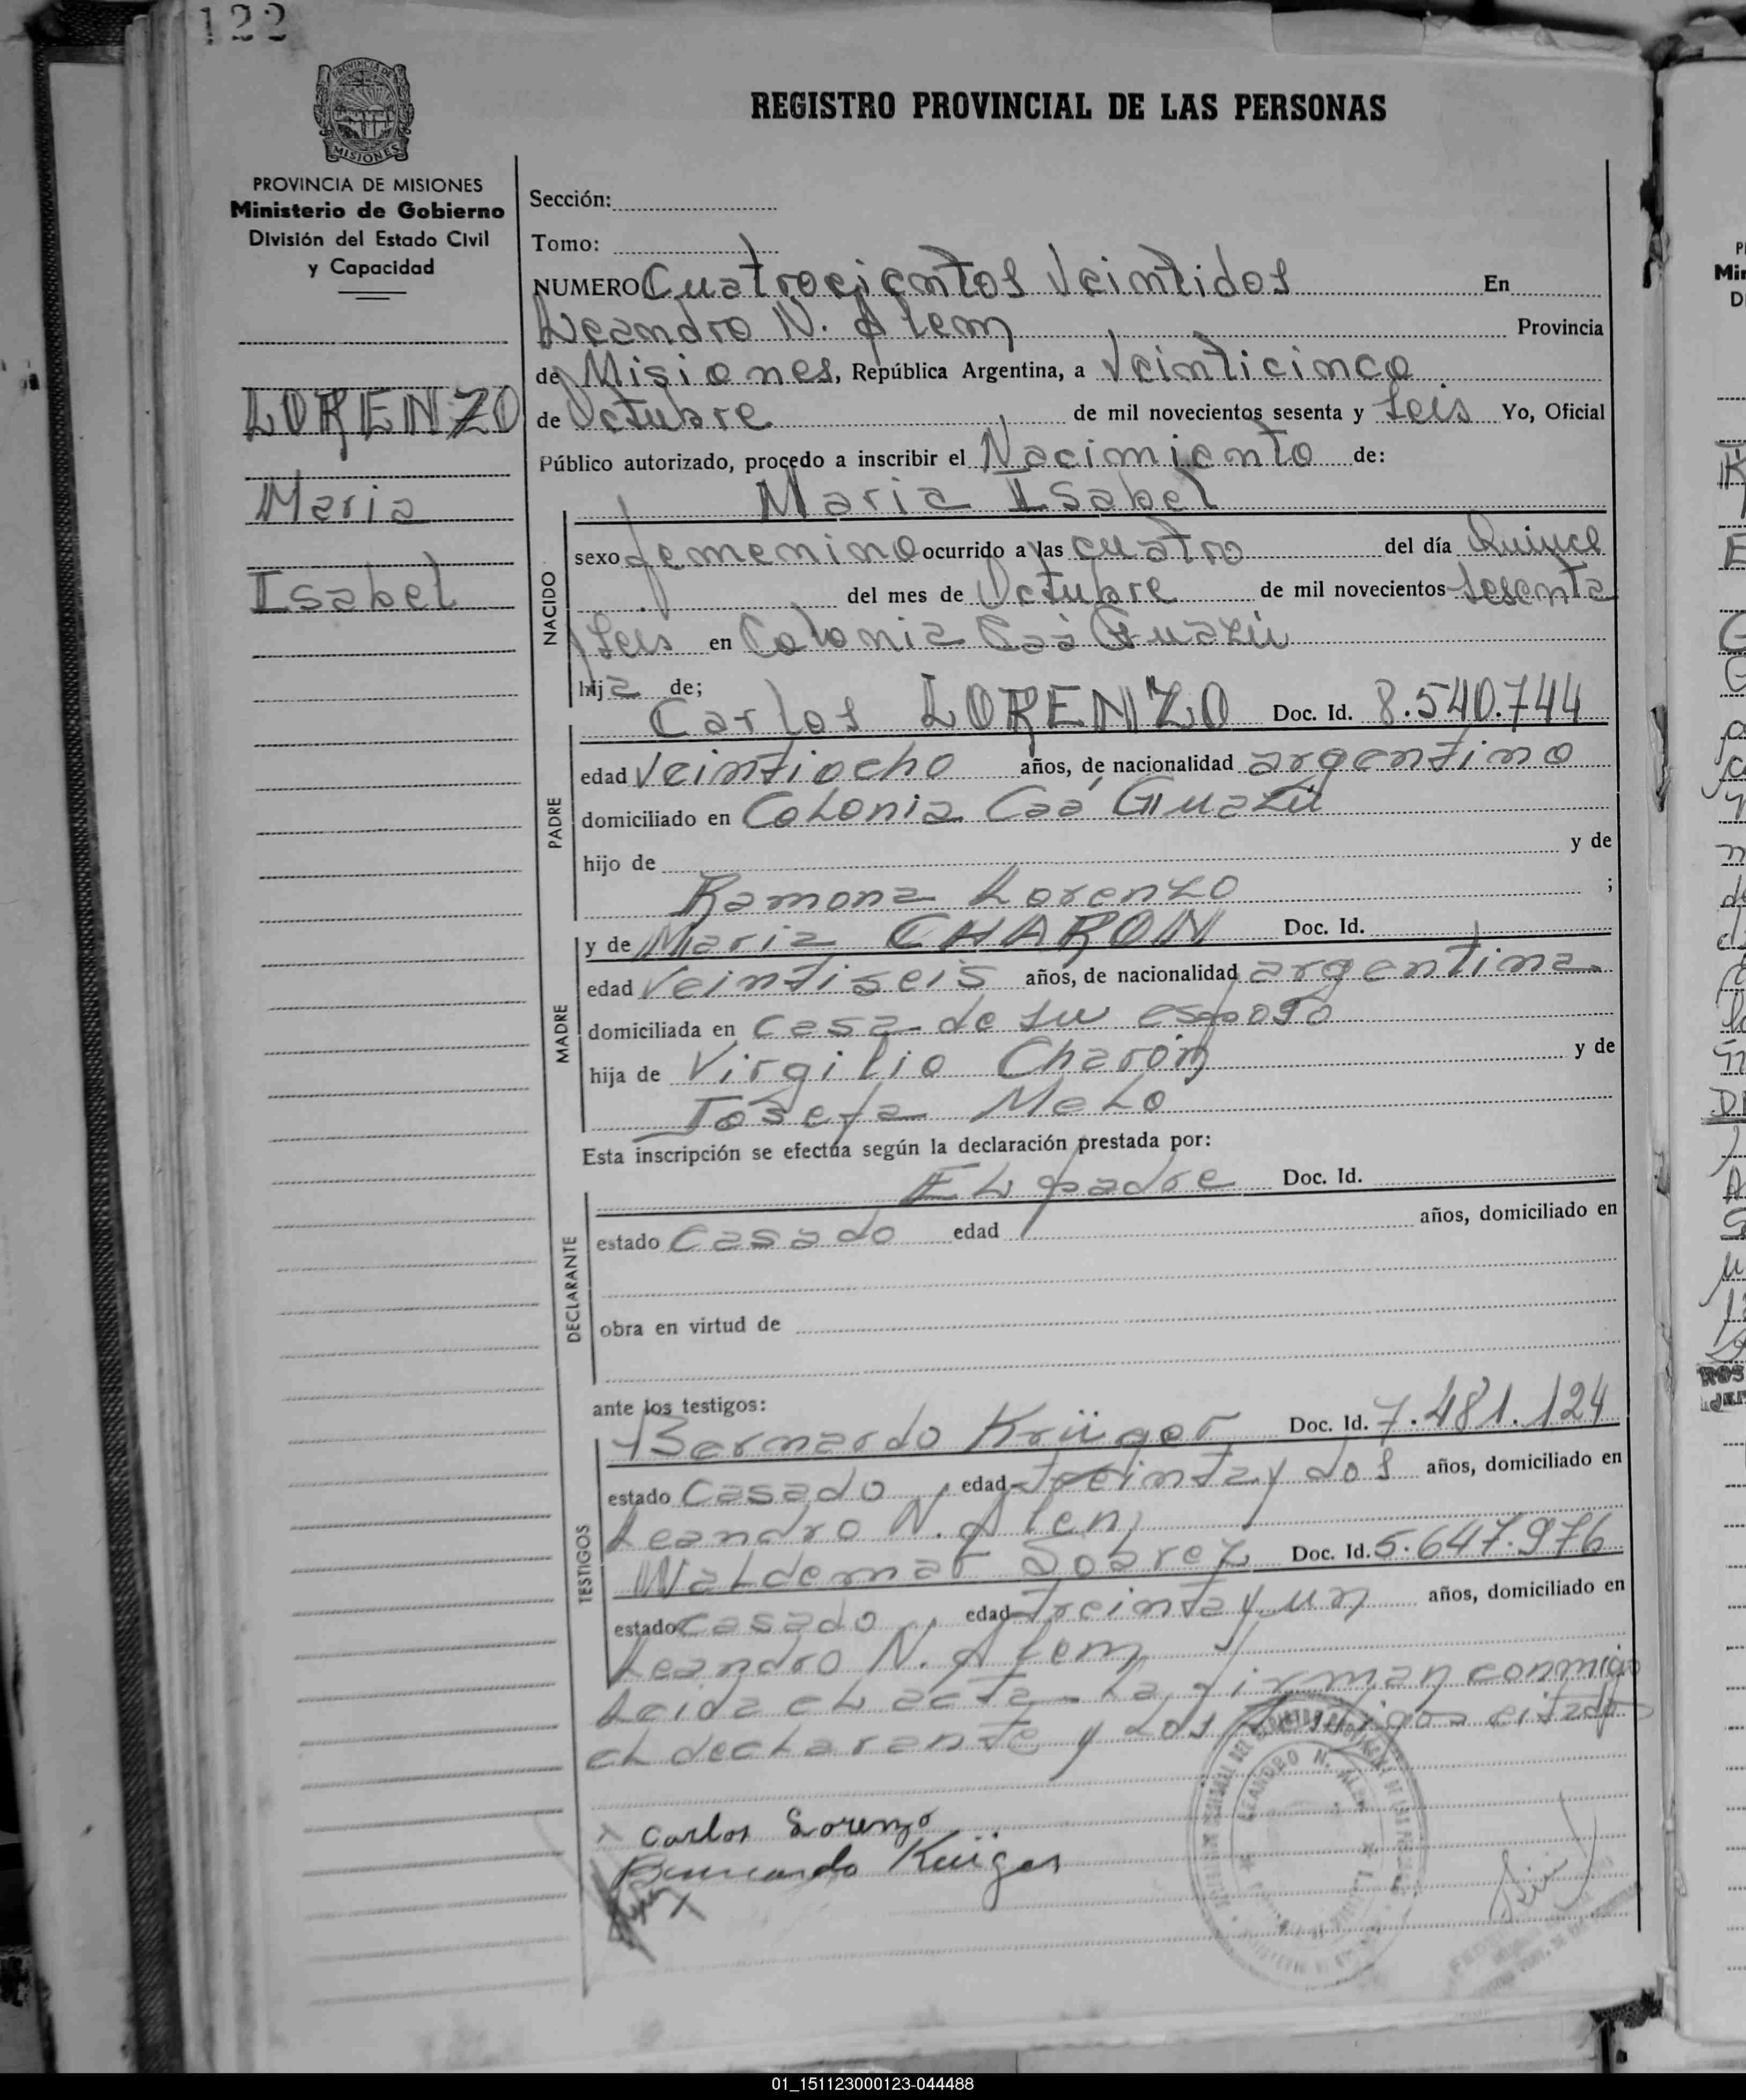 122
PROVINCIA DE
MISIONES
REGISTRO PROVINCIAL DE LAS PERSONAS
PROVINCIA DE MISIONES
Ministerio de Gobierno
División del Estado Civil
y Capacidad
LORENZO
Maria
Isabel
Sección:
Tomo:
NUMERO Cuatrocientos Veintidos En
Leandro N. Alem Provincia
de Misiones, República Argentina, a Veinticinco
de Octubre de mil novecientos sesenta y Seis Yo, Oficial
Público autorizado, procedo a inscribir el Nacimiento de:
Maria Isabel
NACIDO
sexo femenino ocurrido a las cuatro del día Quince
del mes de Octubre de mil novecientos sesenta
y Seis en Colonia Caá Guazú
hija de;
Carlos LORENZO Doc. Id. 8.540.744
PADRE
edad Veintiocho años, de nacionalidad argentino
domiciliado en Colonia Caá Guazú
hijo de y de
Ramona Lorenzo ;
y de Maria CHARON Doc. Id.
MADRE
edad Veintiseis años, de nacionalidad argentina
domiciliada en casa de su esposo
hija de Virgilio Charón y de
Josefa Melo
Esta inscripción se efectúa según la declaración prestada por:
El padre Doc. Id.
DECLARANTE
estado Casado edad años, domiciliado en
obra en virtud de
ante los testigos:
Bernardo Krüger Doc. Id. 7.481.124
TESTIGOS
estado Casado, edad treinta y dos años, domiciliado en
Leandro N. Alem
Waldemar Sobrez Doc. Id. 5.647.976
estado casado, edad treinta y un años, domiciliado en
Leandro N. Alem
Leida el acta la firman conmigo
el declarante y los testigos citados
x Carlos Lorenzo
Bernardo Krüger
X
LEANDRO N. ALEM
01_151123000123-044488